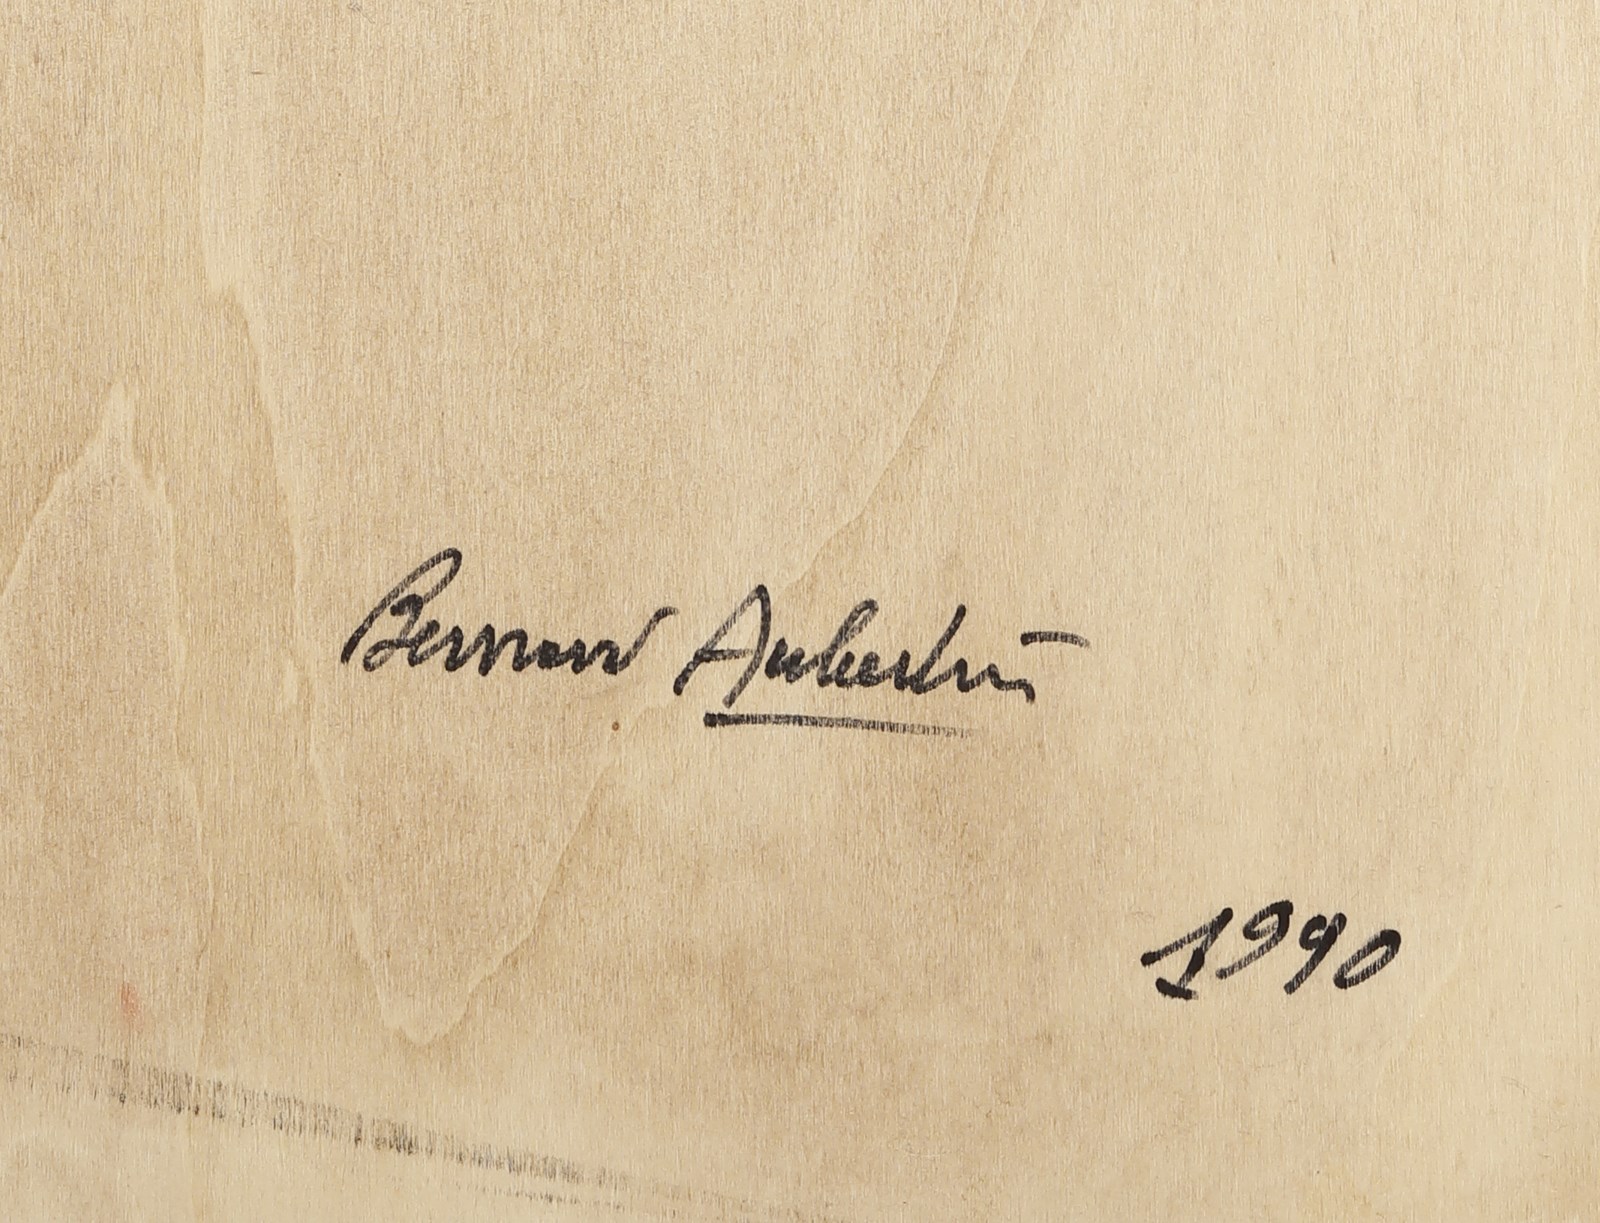 Bernard Aubertin
1990